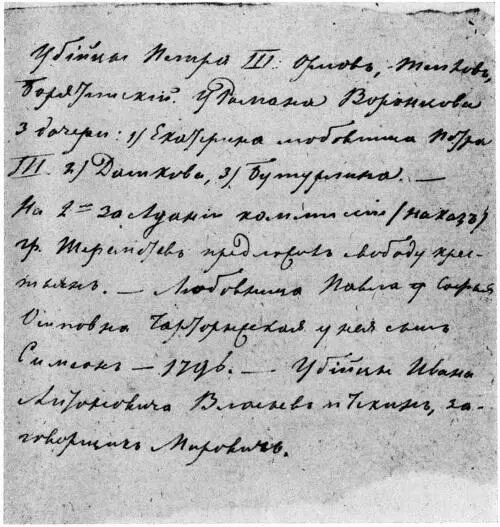 Убійцы Петра III: Орловъ, Тепловъ,
Борятинскій. У Романа Воронцова
3 дочери: 1) Екатерина любовница Петра
III. 2) Дашкова, 3) Бутурлина. —
На 2-мъ засѣданіи коммиссіи (наказъ)
гр. Шереметевъ предложилъ свободу крес-
тьянъ. — Любовница Павла Софья
Осиповна Чарторыжская у нея сынъ
Симеонъ — 1796. — Убійцы Ивана
Антоновича Власьевъ и Чекинъ, за-
говорщикъ Мировичъ.